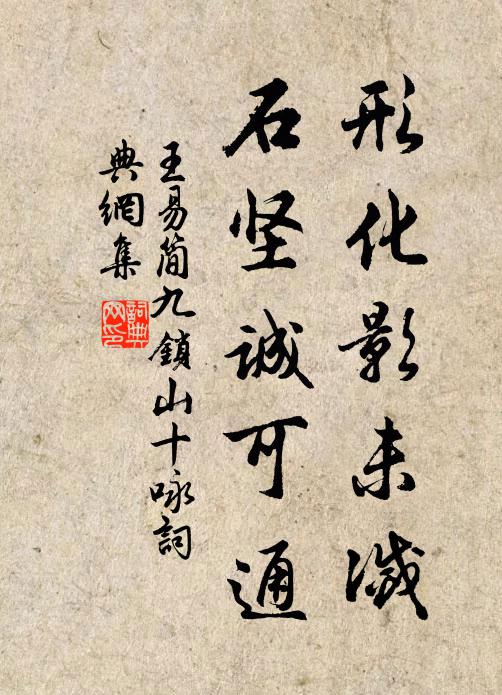 形化影未滅
石坚誠可通
王易简九鎖山十咏詞
典網集
詞典网印